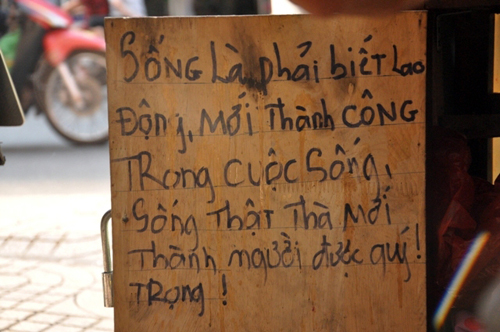 SỐNG Là phải biết Lao
Động, Mới Thành CÔNG
TRong CUỘC Sống,
Sống Thật Thà Mới
Thành người được quý!
TRọng!